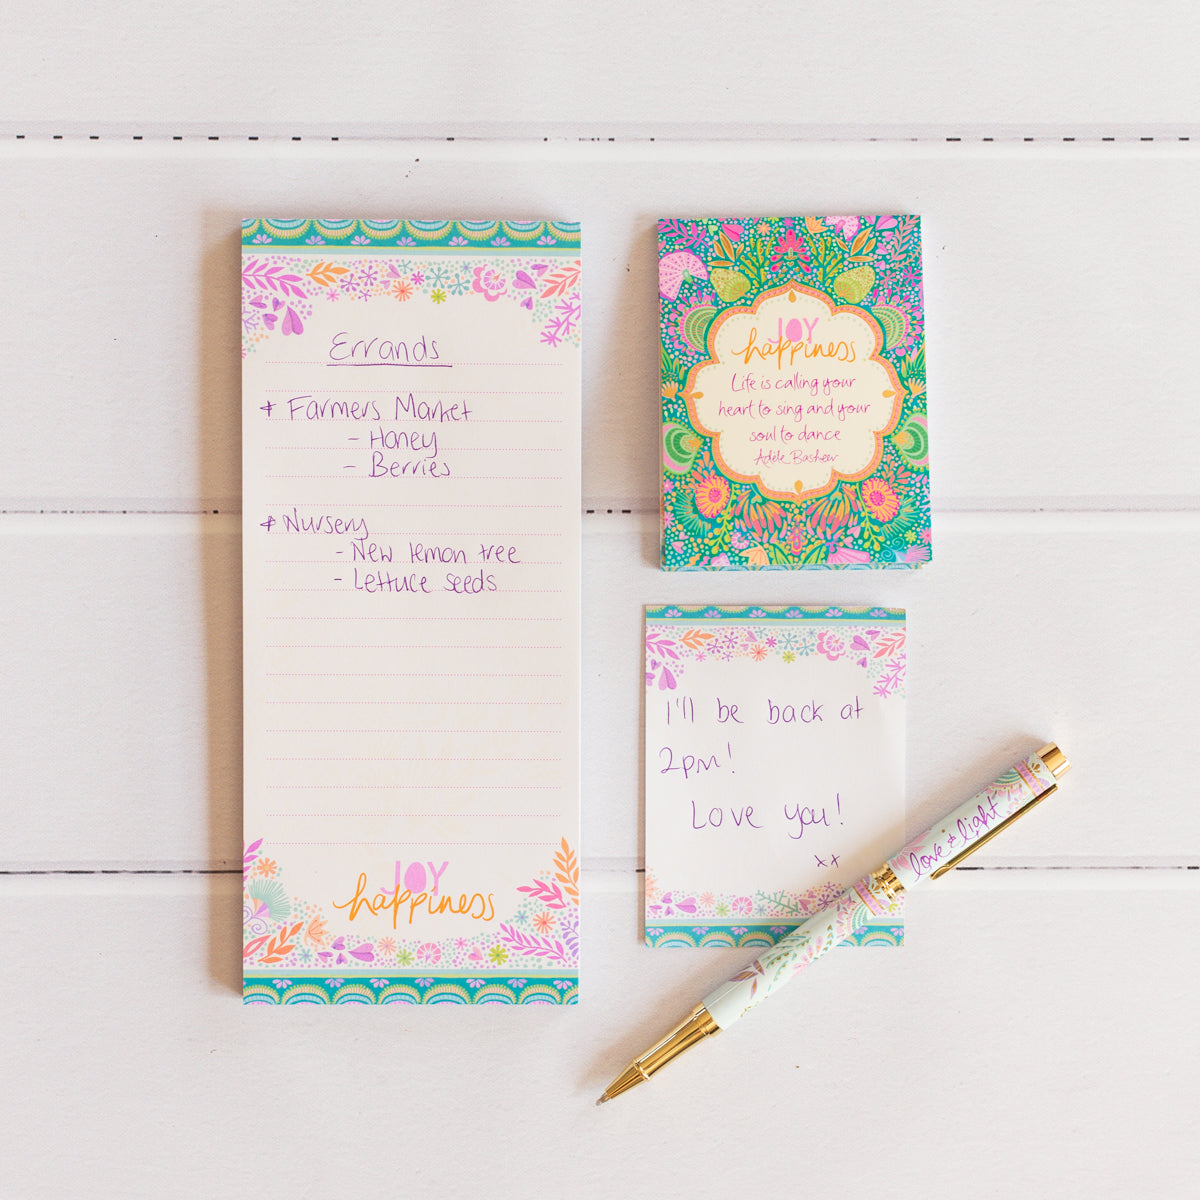 Errands
* Farmers Market
- Honey
- Berries
* Nursery
- New lemon tree
- Lettuce seeds
JOY
happiness
JOY
happiness
Life is calling your
heart to sing and your
soul to dance
Adèle Basheer
I'll be back at
2pm!
Love you!
xx
love & light